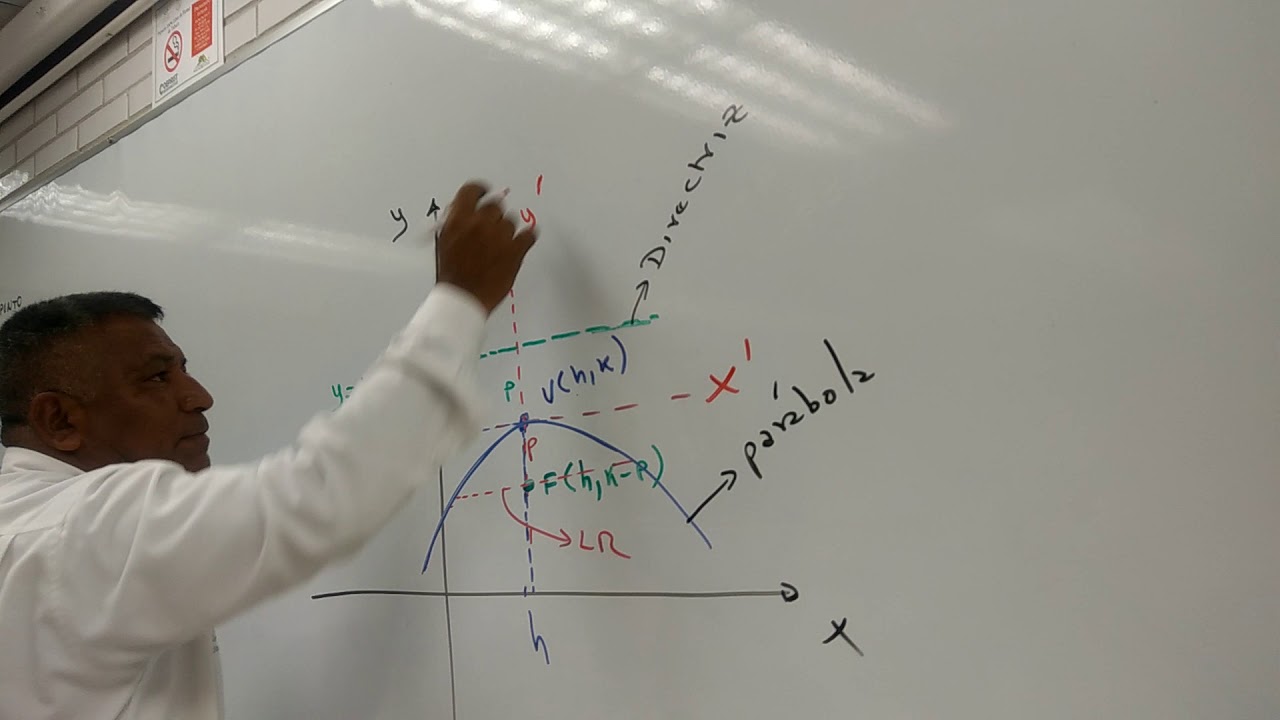 PINTO
y
y'
Directrix
y=
P
V(h,k)
X'
parábola
P
F(h,k-P)
LR
X
h